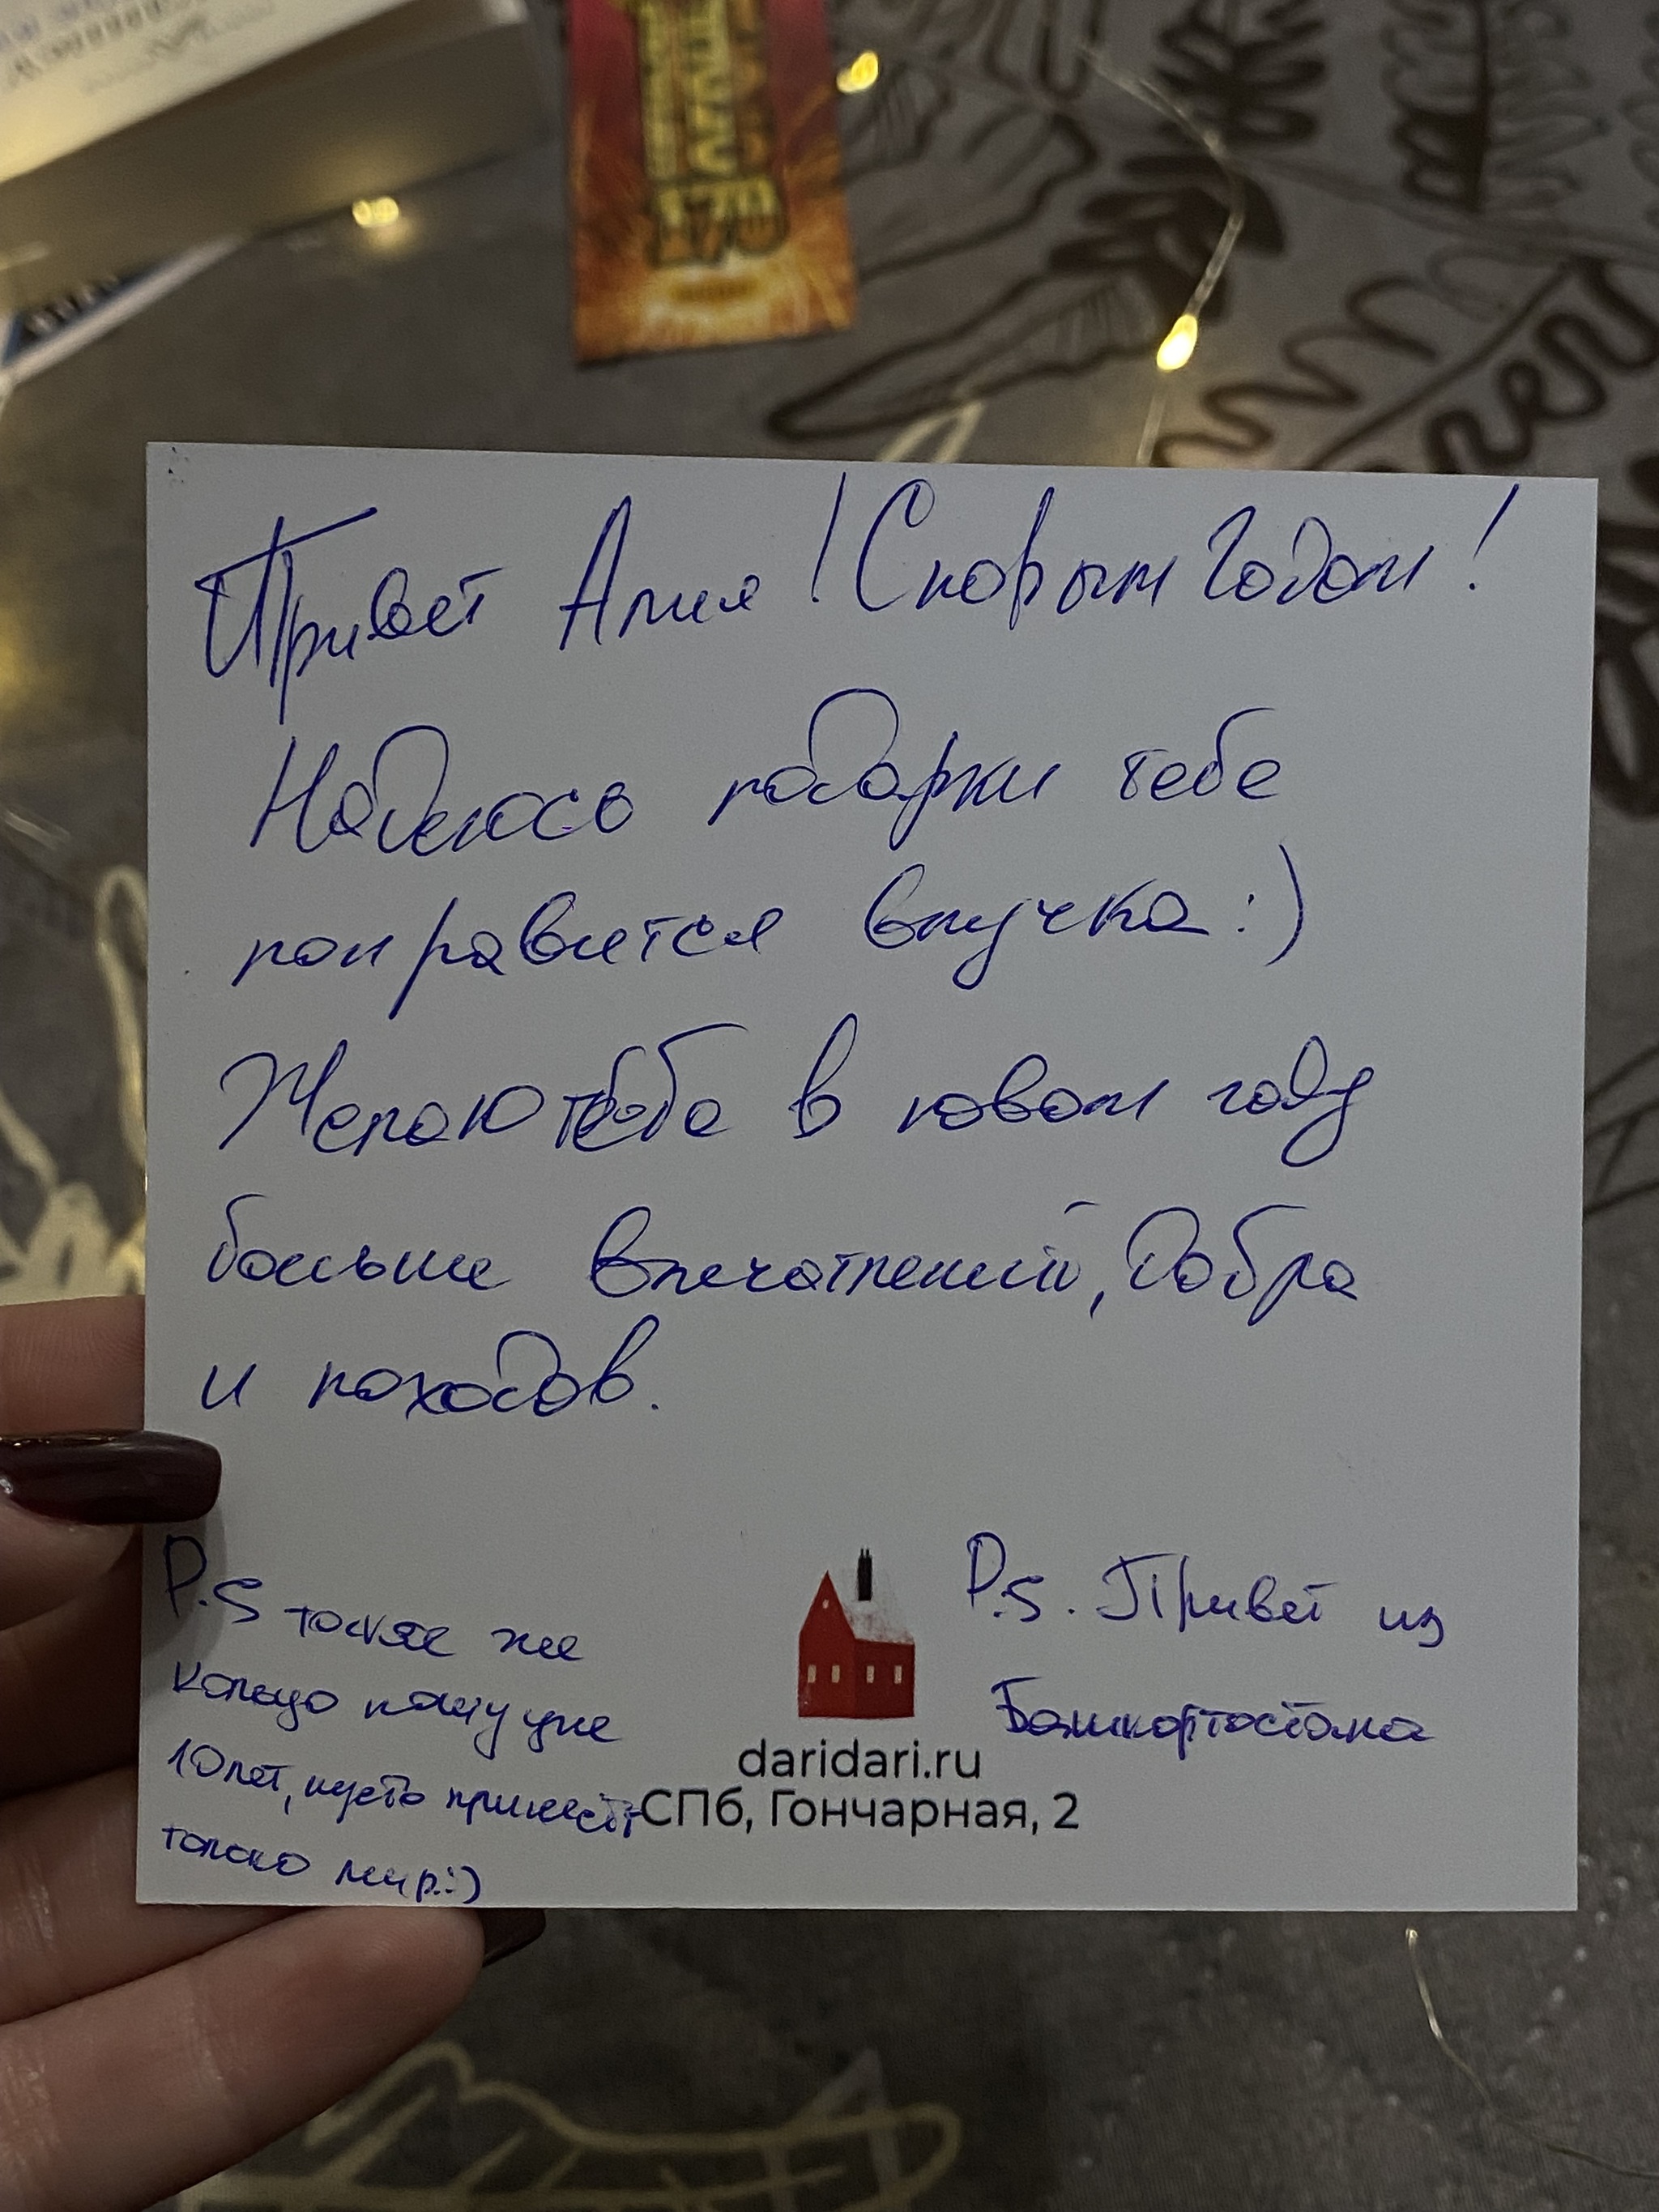 Привет Алия! С новым годом!
Надеюсь подарки тебе
понравится внучка :)
Желаю тебе в новом году
больше впечатлений, добра
и походов.
P.S такое же
кольцо ношу уже
10 лет, пусть принесёт
только мир :)
P.S. Привет из
Башкортостана
daridari.ru
СПб, Гончарная, 2
170